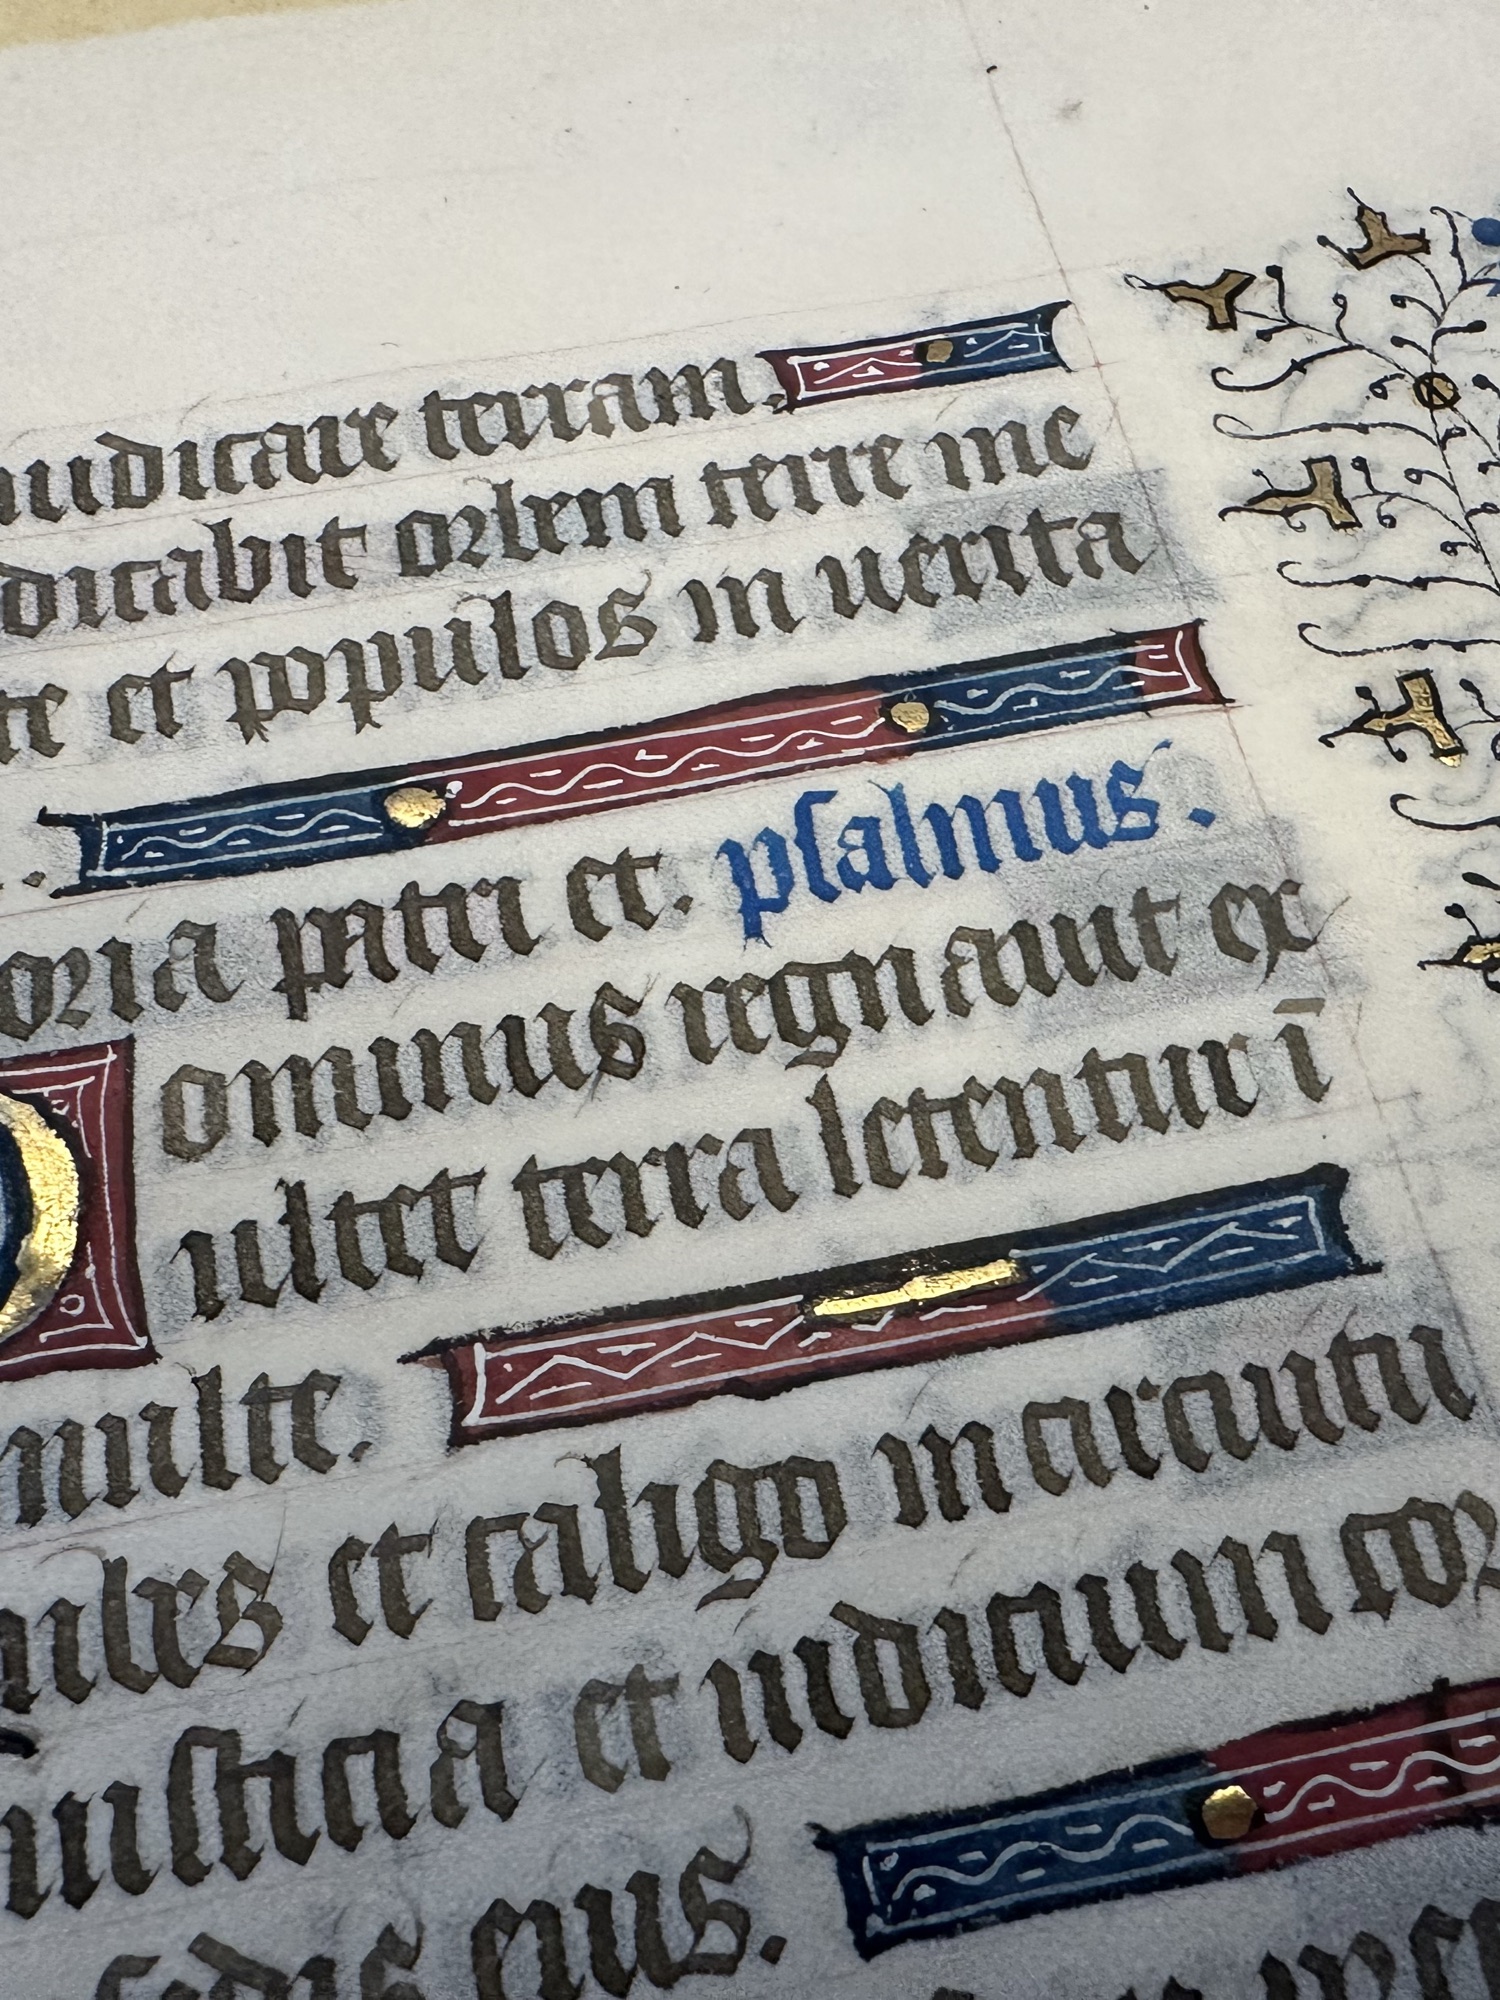 iudicare terram.
dicabit orbem terre in e
te et populos in uerita
.
oria patri et. psalmus.
ominus regnauit ex
ultet terra letentur ī
multe.
et caligo in circuitu
iusticia et iudicium cor
sedis eius.